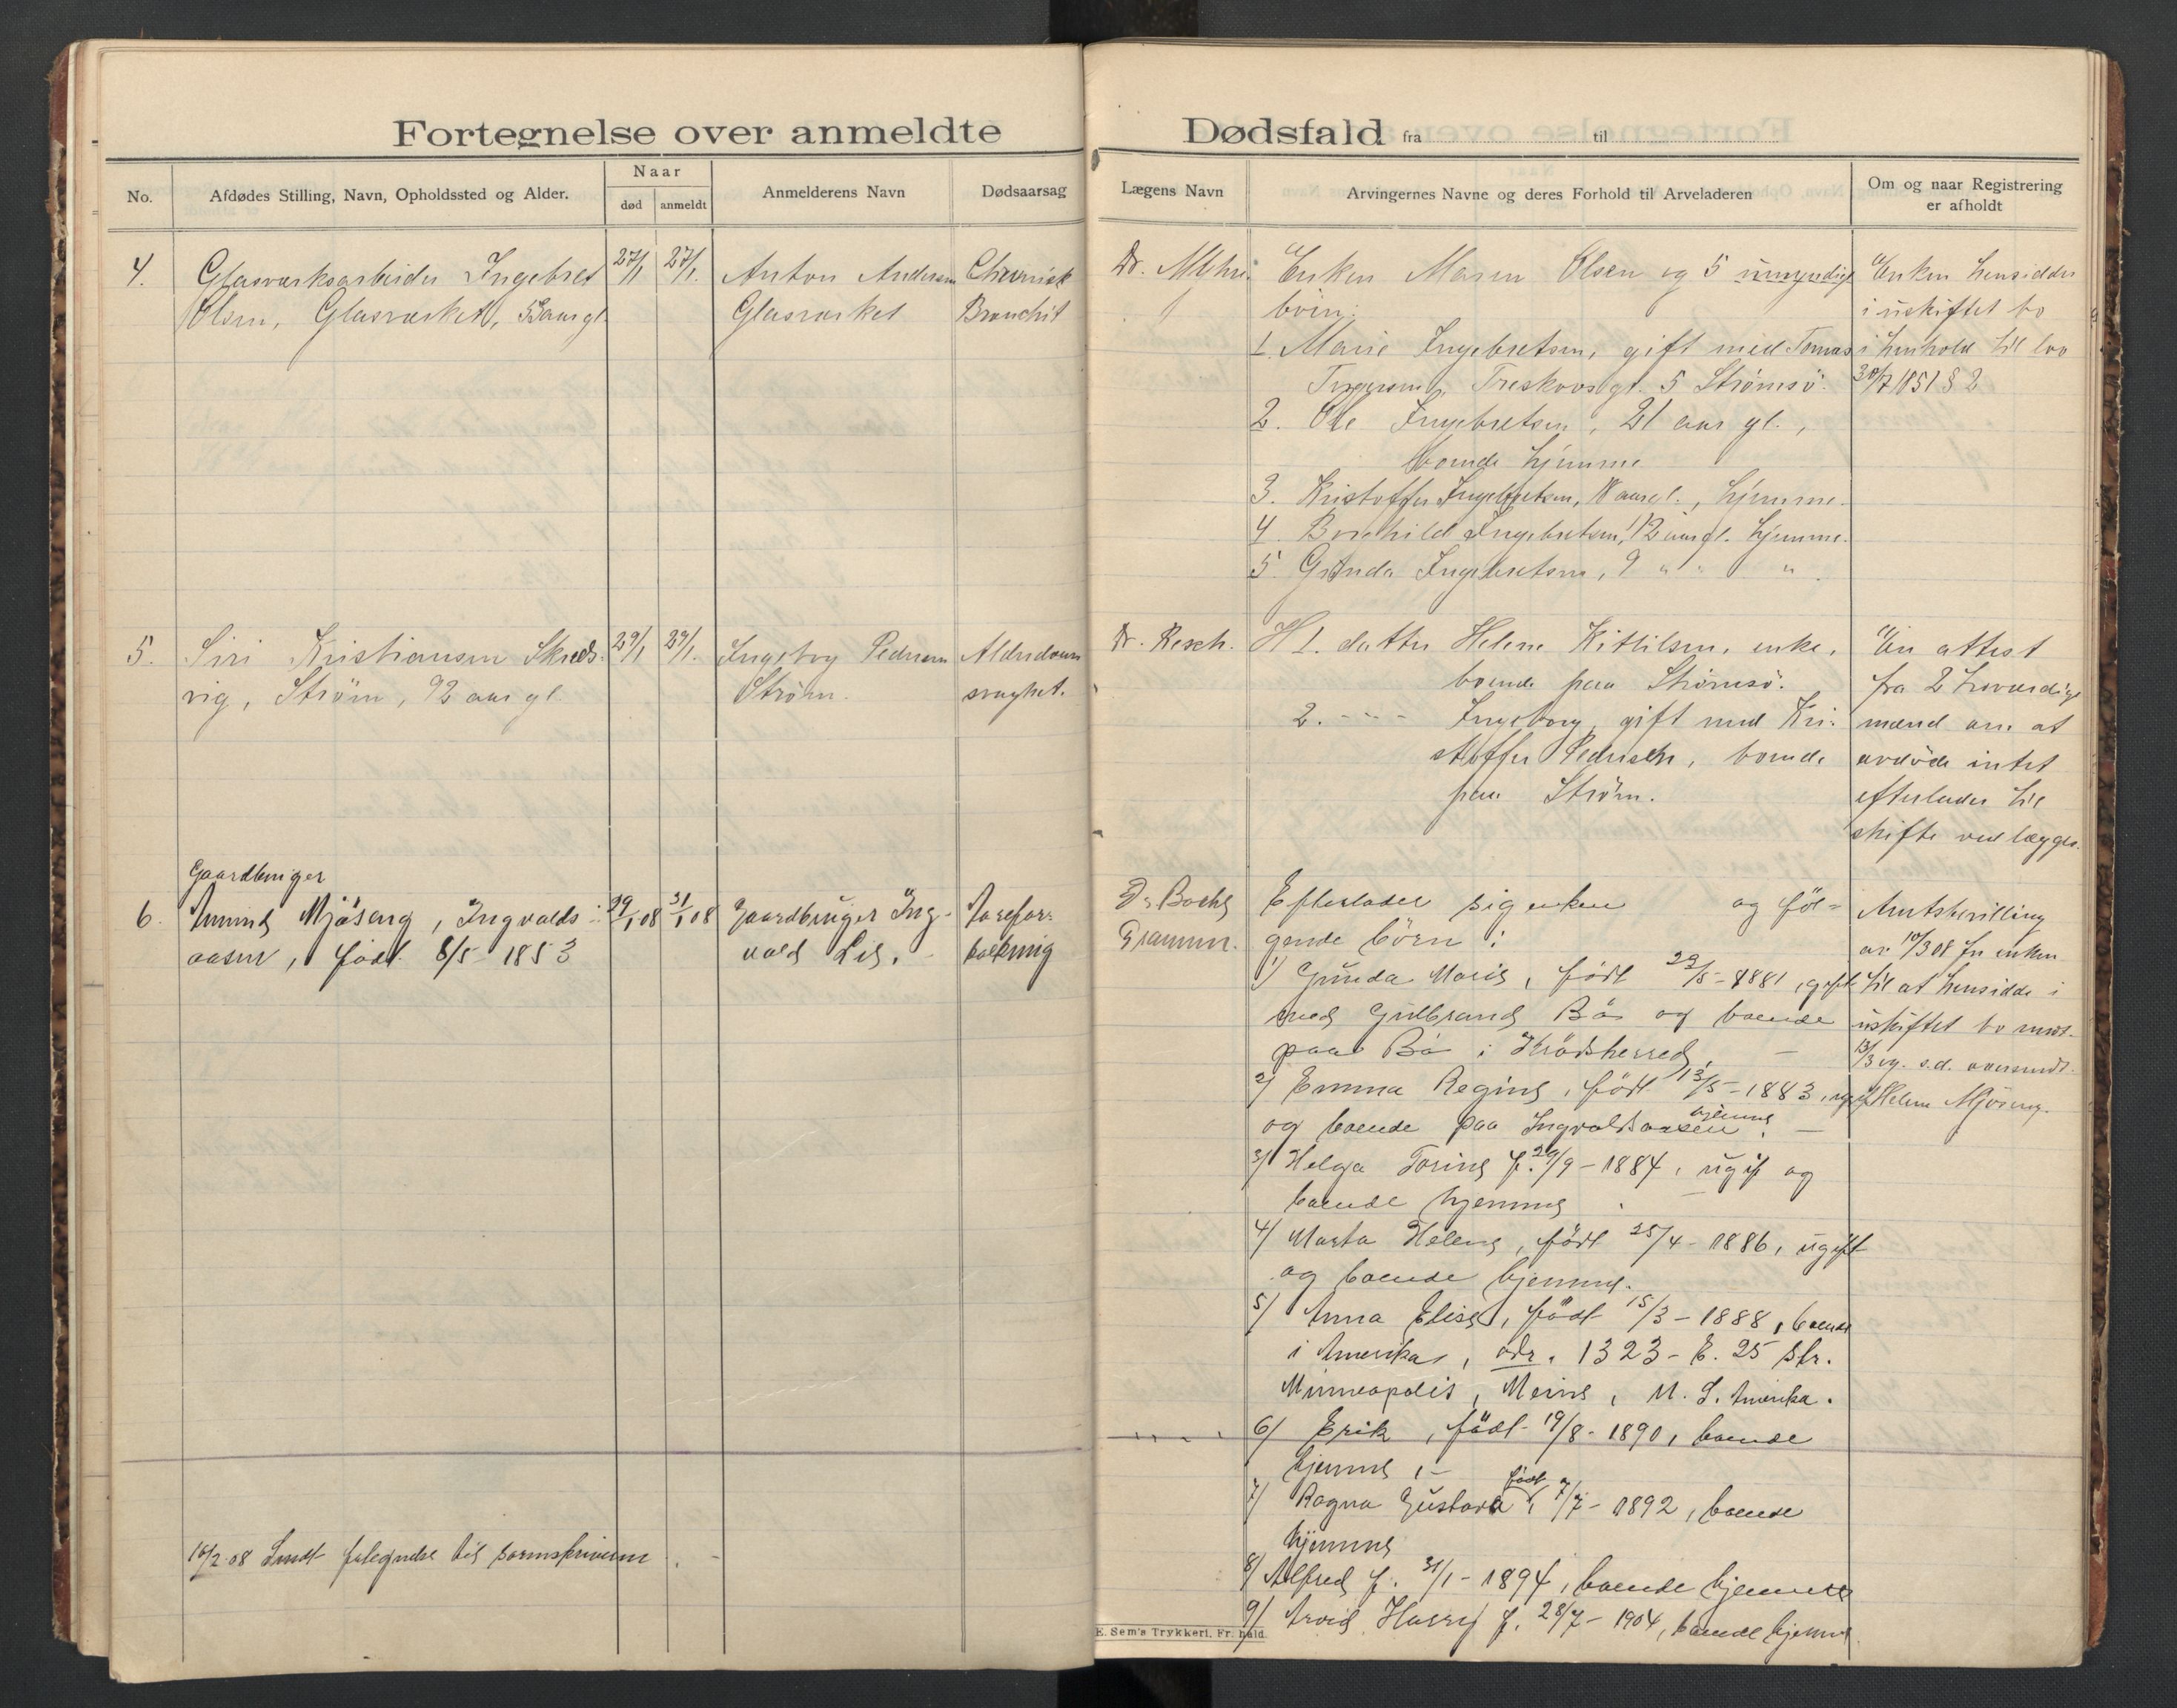 Fortegnelse over anmeldte
Dødsfald fra til
No.
Afdødes Stilling, Navn, Opholdssted og Alder.
Naar
død anmeldt
Anmelderens Navn
Dødsaarsag
Lægens Navn
Arvingernes Navne og deres Forhold til Arveladeren
Om og naar Registrering
er afholdt
4. Glasværksarbeider Ingebret
Olsen, Glasværket, 53 aar gl.
27/1 27/1.
Anton Andersen
Glasværket
Chronisk
Bronchit
Dr. Myhre
Enken Maren Olsen og 5 umyndige
börn:
1. Marie Ingebretsen, gift med Tomas
Treskovsgt. 5 Strömsö.
2. Ole Ingebretsen, 21 aar gl.,
boende hjemme
3. Kristoffer Ingebretsen, 18 aar gl., hjemme.
4. Borghild Ingebretsen, 12 aar gl. hjemme.
5. Ingebretsen, 9 " " "
Enken hensidder
i uskiftet bo
i henhold til lov
30/7 1851 § 2
5. Siri Kristiansen Skreds-
vig, Ström, 92 aar gl.
29/1 29/1.
Ingeborg Pedersen
Ström.
Alderdoms
svaghet.
Dr. Resch.
1. datter Helene Kittilsen, enke,
boende paa Strömsö.
2. - " - Ingeborg, gift med Kri-
stoffer Pedersen, boende
paa Ström.
En attest
fra 2 troværdige
mænd om at
avdöde intet
efterlader til
skifte vedlægges.
Gaardbruger
6. Amund Mjöseng, Ingvalds-
aasen, född 8/5 1853
29/1 08 31/1 08
Gaardbruger Ing-
vald Lie.
Aarefor-
kalkning
Dr Bache
Drammen.
Efterlader sig enken og föl-
gende börn:
1) Gunda Marie, född 29/5 - 1881, gift
med Gulbrand Bö og boende
paa Bö i Krödsherred,
2) Emma Regine, född 13/5 - 1883, ugift
og boende paa Ingvaldsaasen hjemme.
3) Helga Torine f. 29/9 - 1884, ugift og
boende hjemme
4) Marta Helene, född 25/4 - 1886, ugift
og boende hjemme.
5) Anna Elise, född 15/3 - 1888, boende
i Amerika, adr. 1323 - E. 25 Str.
Minneapolis, U. S. Amerika.
6) Erik, född 19/8 - 1890, boende
hjemme,
7) Ragna Gustava, född 7/7 - 1892, boende
hjemme
8) Alfred f. 31/1 - 1894, boende hjemme
9) Arvid Harry f. 28/7 - 1904, boende hjemme
Amtsbevilling
av 10/3 08 for enken
til at hensidde i
uskiftet bo
13/3 og s.d. oversendt
Helene Mjöseng.
16/2 08 Sendt fortegnelse til sorenskriveren
E. Sem's Trykkeri, Fr. hald.